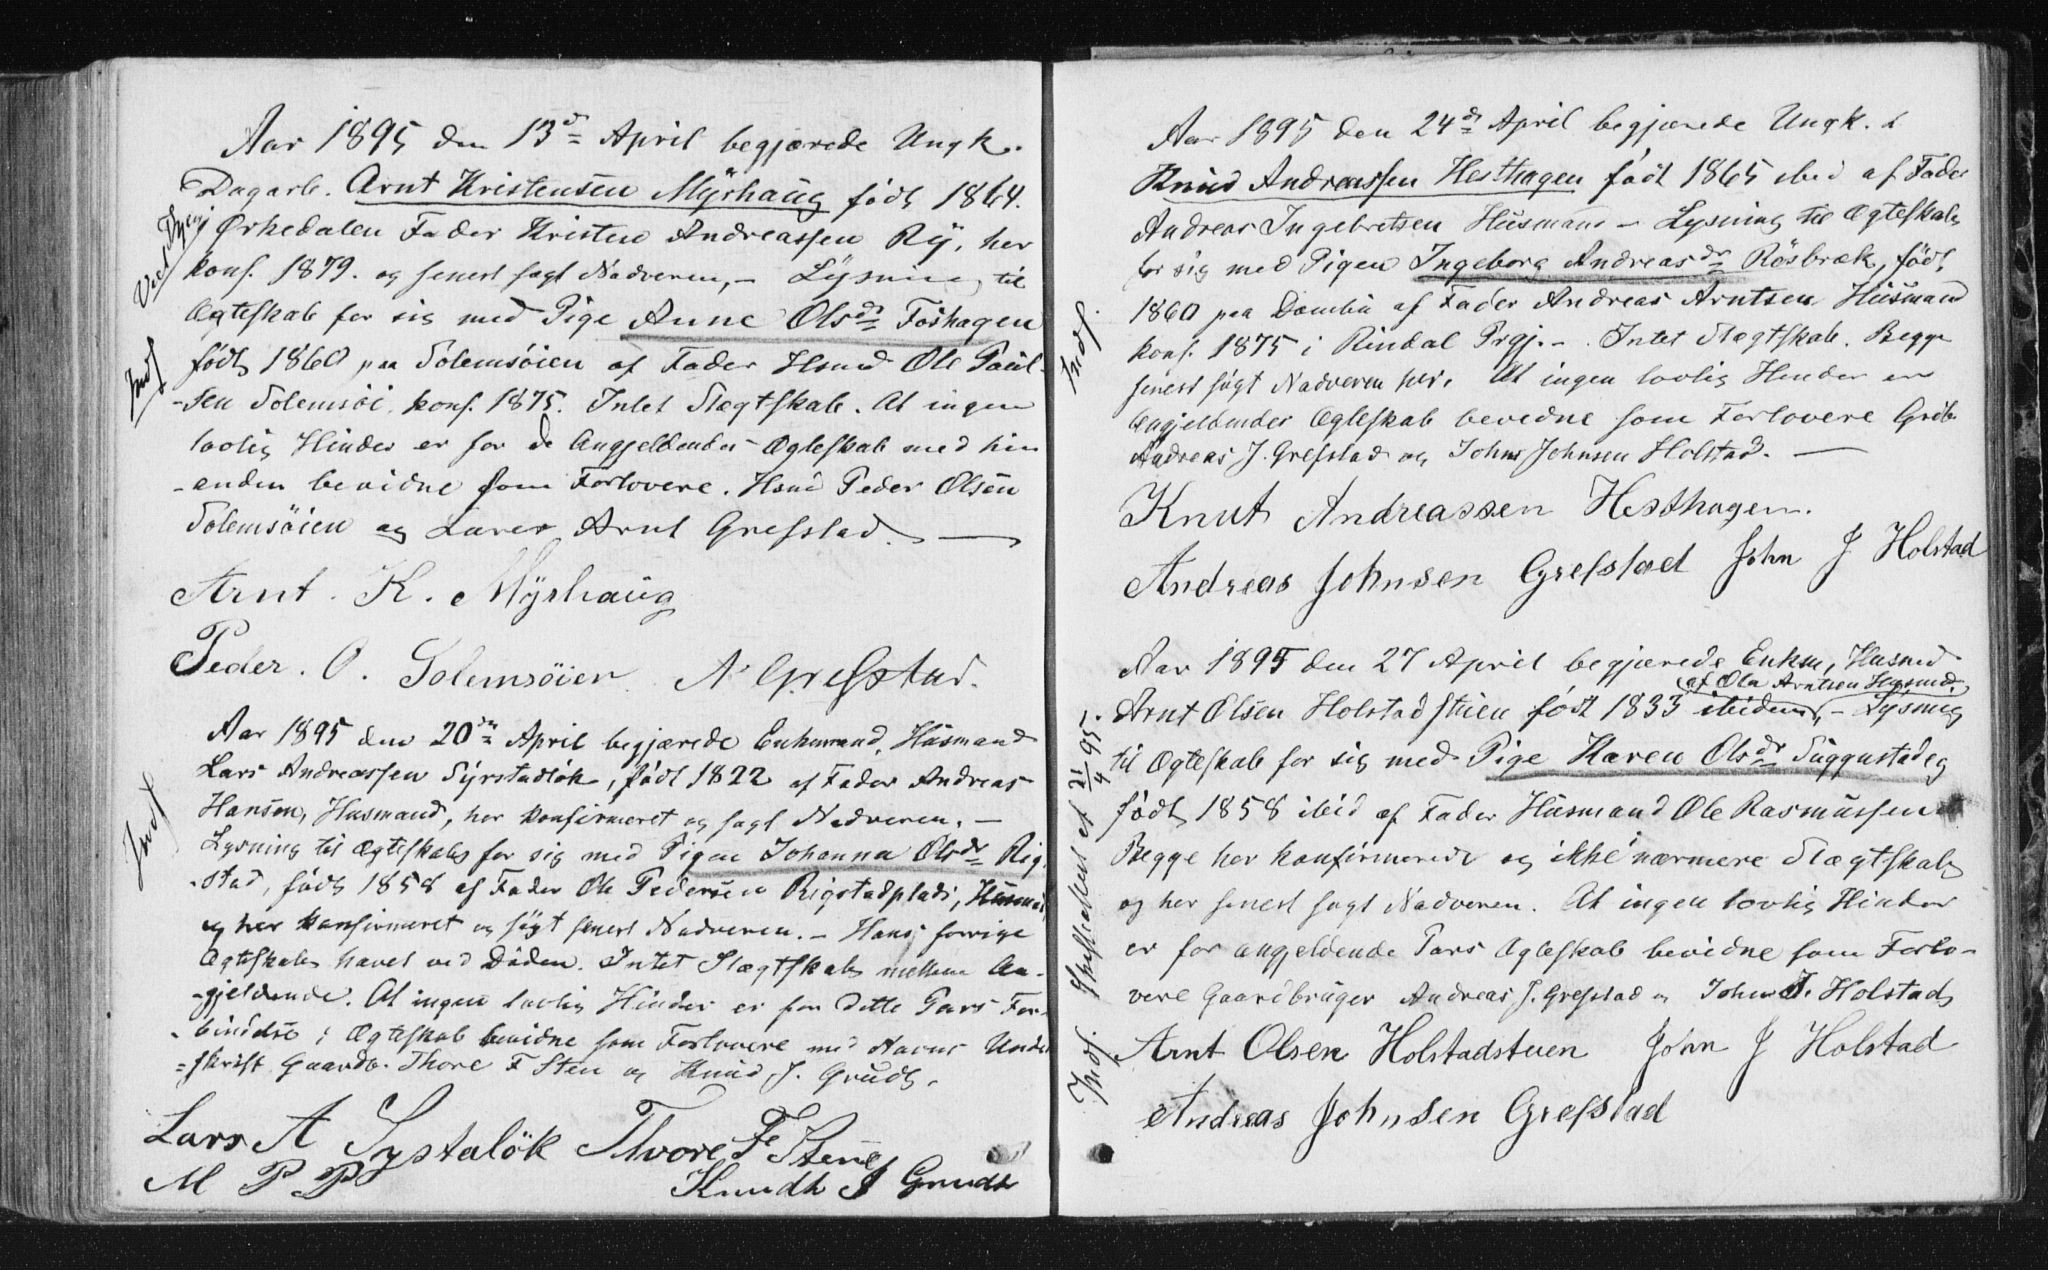 Aar 1895 den 13de April begjærede Ungk.
Dagarb. Arnt Kristensen Myrhaug født 1864.
i Ørkedalen Fader Kristen Andreassen Ry, her
konf. 1879. og senest søgt Nadveren, – Lysning til
Ægteskab for sig med Pige Anne Olsdr Foshagen
født 1860 paa Solemsøien af Fader Hsmd Ole Paul-
-sen Solemsøi konf. 1875. Intet Slægtskab. At ingen
lovlig Hinder er for de Angjeldendes Ægteskab med hin-
-anden bevidne som Forlovere. Hsmd Peder Olsen
Solemsöien og Lærer Arnt Grefstad. —
Arnt. K. Myrhaug
Peder. O. Solemsøien A Grefstad.
Indf
Aar 1895 den 20de April begjærede Enkemand, Husmand
Lars Andreassen Syrstadløk, født 1822 af Fader Andreas
Hansen, Husmand, her konfirmeret og søgt Nadveren. –
Lysning til Ægteskab for sig med Pigen Johanna Olsdr Rig-
-stad, født 1858 af Fader Ole Pedersen Rigstadplads, Husmd
og her konfirmeret og søgt senest Nadveren. – Hans forrige
Ægteskab hævet ved Døden. Intet Slægtskab mellem An-
-gjeldende. At ingen lovlig Hinder er for dette Pars For-
-bindelse i Ægteskab bevidne som Forlovere med Navns Under
=skrift Gaardb. Thore F Sten og Knud J. Grudt.
Lars A Systaløk Thore F Stene
M P P Knudt J Grudt
Indf
Aar 1895 den 24de April begjærede Ungk.
Knud Andreassen Hesthagen født 1865 ibid af Fader
Andreas Ingebretsen Husmand – Lysning til Ægteskab
for sig med Pigen Ingeborg Andreasdr Rösbræk, født
1860 paa Dombu af Fader Andreas Arntsen Husmand
konf. 1875 i Rindal Prgj. – Intet Slægtskab. Begge
senest søgt Nadveren her. At ingen lovlig Hinder er
Angjeldendes Ægteskab bevidne som Forlovere Grdb.
Andreas J. Grefstad og John Johnsen Holstad. —
Knut Andreassen Hesthagen.
Andreas Johnsen Grefstad John J Holstad
Indf.
Aar 1895 den 27 April begjærede Enkm, Husmd
af Ola Arntsen Husmd.
Arnt Olsen Holstadstuen født 1833 ibidem, – Lysning
til Ægteskab for sig med Pige Karen Olsdr Suggustadeg
født 1858 ibid af Fader Husmand Ole Rasmussen
Begge her konfirmerede og ikke nærmere Slægtskab
og her senest søgt Nadveren. At ingen lovlig Hinder
er for angjeldende Pars Ægteskab bevidne som Forlo-
vere Gaardbruger Andreas J. Grefstad og John J. Holstad
Arnt Olsen Holstadstuen John J Holstad
Andreas Johnsen Grefstad
Indf. Skifteattest af 21/4 95.